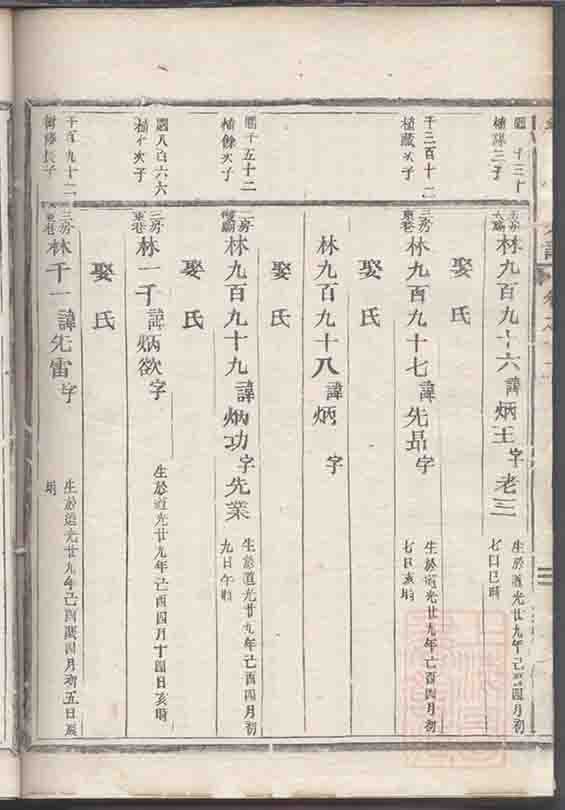 三子
林九百九十六諱炳王字老三
生於道光廿九年己酉四月初
七日巳時
娶氏
千三百十二
植藏次子
三房
東巷
林九百九十七諱先昂字
生於道光廿九年己酉四月初
七日亥時
娶氏
林九百九十八諱炳 字
娶氏
國千五十二
植餘次子
二房
林九百九十九諱炳功字先業
生於道光廿九年己酉四月初
九日午時
娶氏
國八百六六
植 次子
三房
東巷
林一千諱炳欲字
生於道光廿九年己酉四月十四日亥時
娶氏
千百九十二
長子
三房
東巷
林千一諱先雷字
生於道光廿九年己酉閏四月初五日亥
時
娶氏